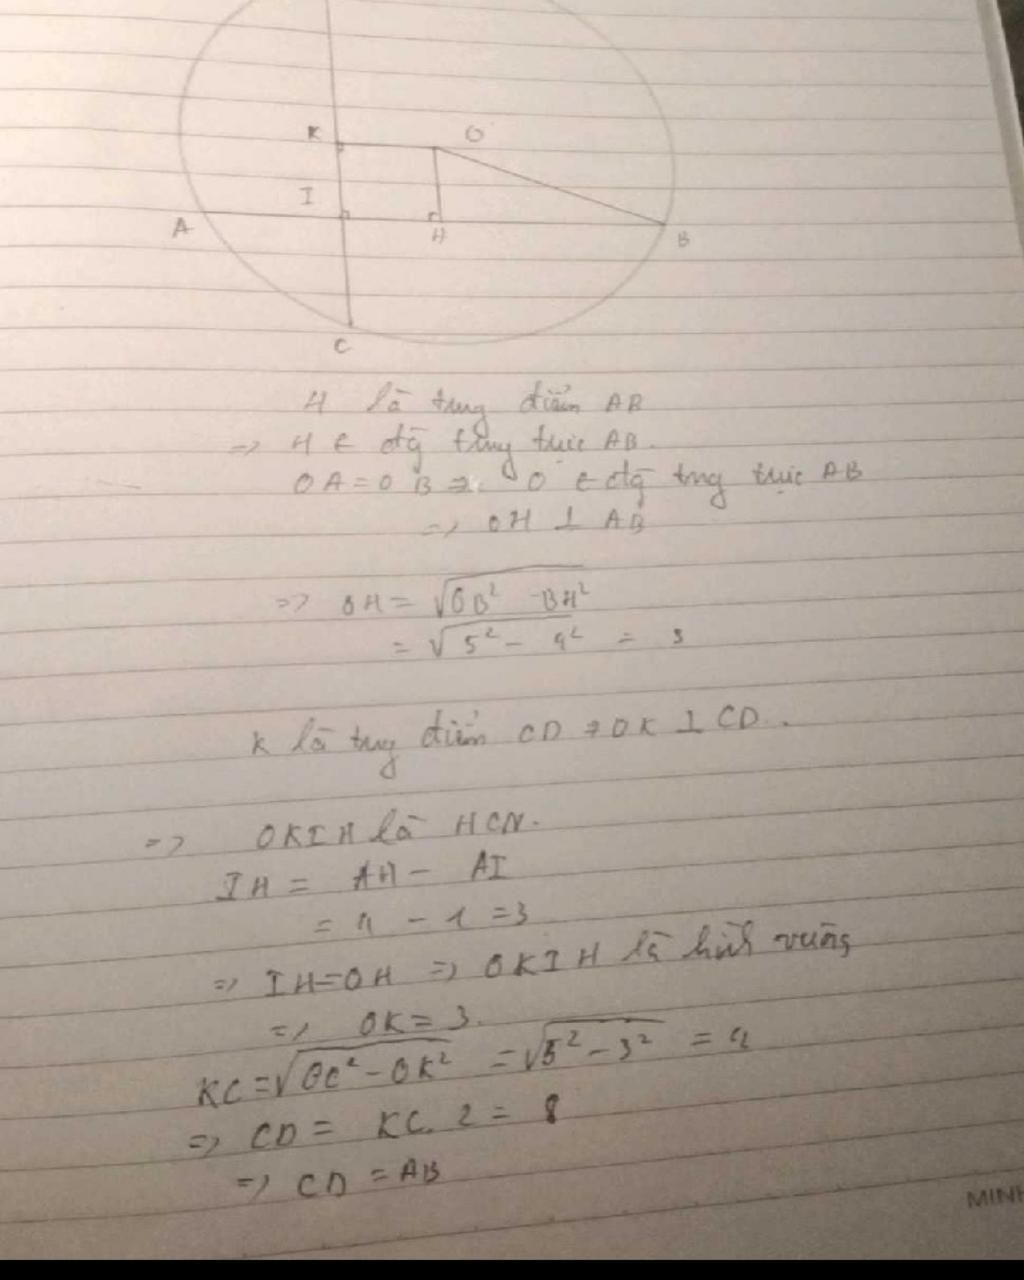 K O
I
A H B
C
H là trung điểm AB
=> H ∈ đg trung trực AB.
OA = OB => O ∈ đg trng trực AB
=> OH ⊥ AB
=> OH = √OB² - BH²
= √5² - 4² = 3
K là trung điểm CD => OK ⊥ CD.
=> OKIH là HCN.
IH = AH - AI
= 4 - 1 = 3
=> IH = OH => OKIH là hình vuông
=> OK = 3.
KC = √OC² - OK² = √5² - 3² = 4
=> CD = KC. 2 = 8
=> CD = AB